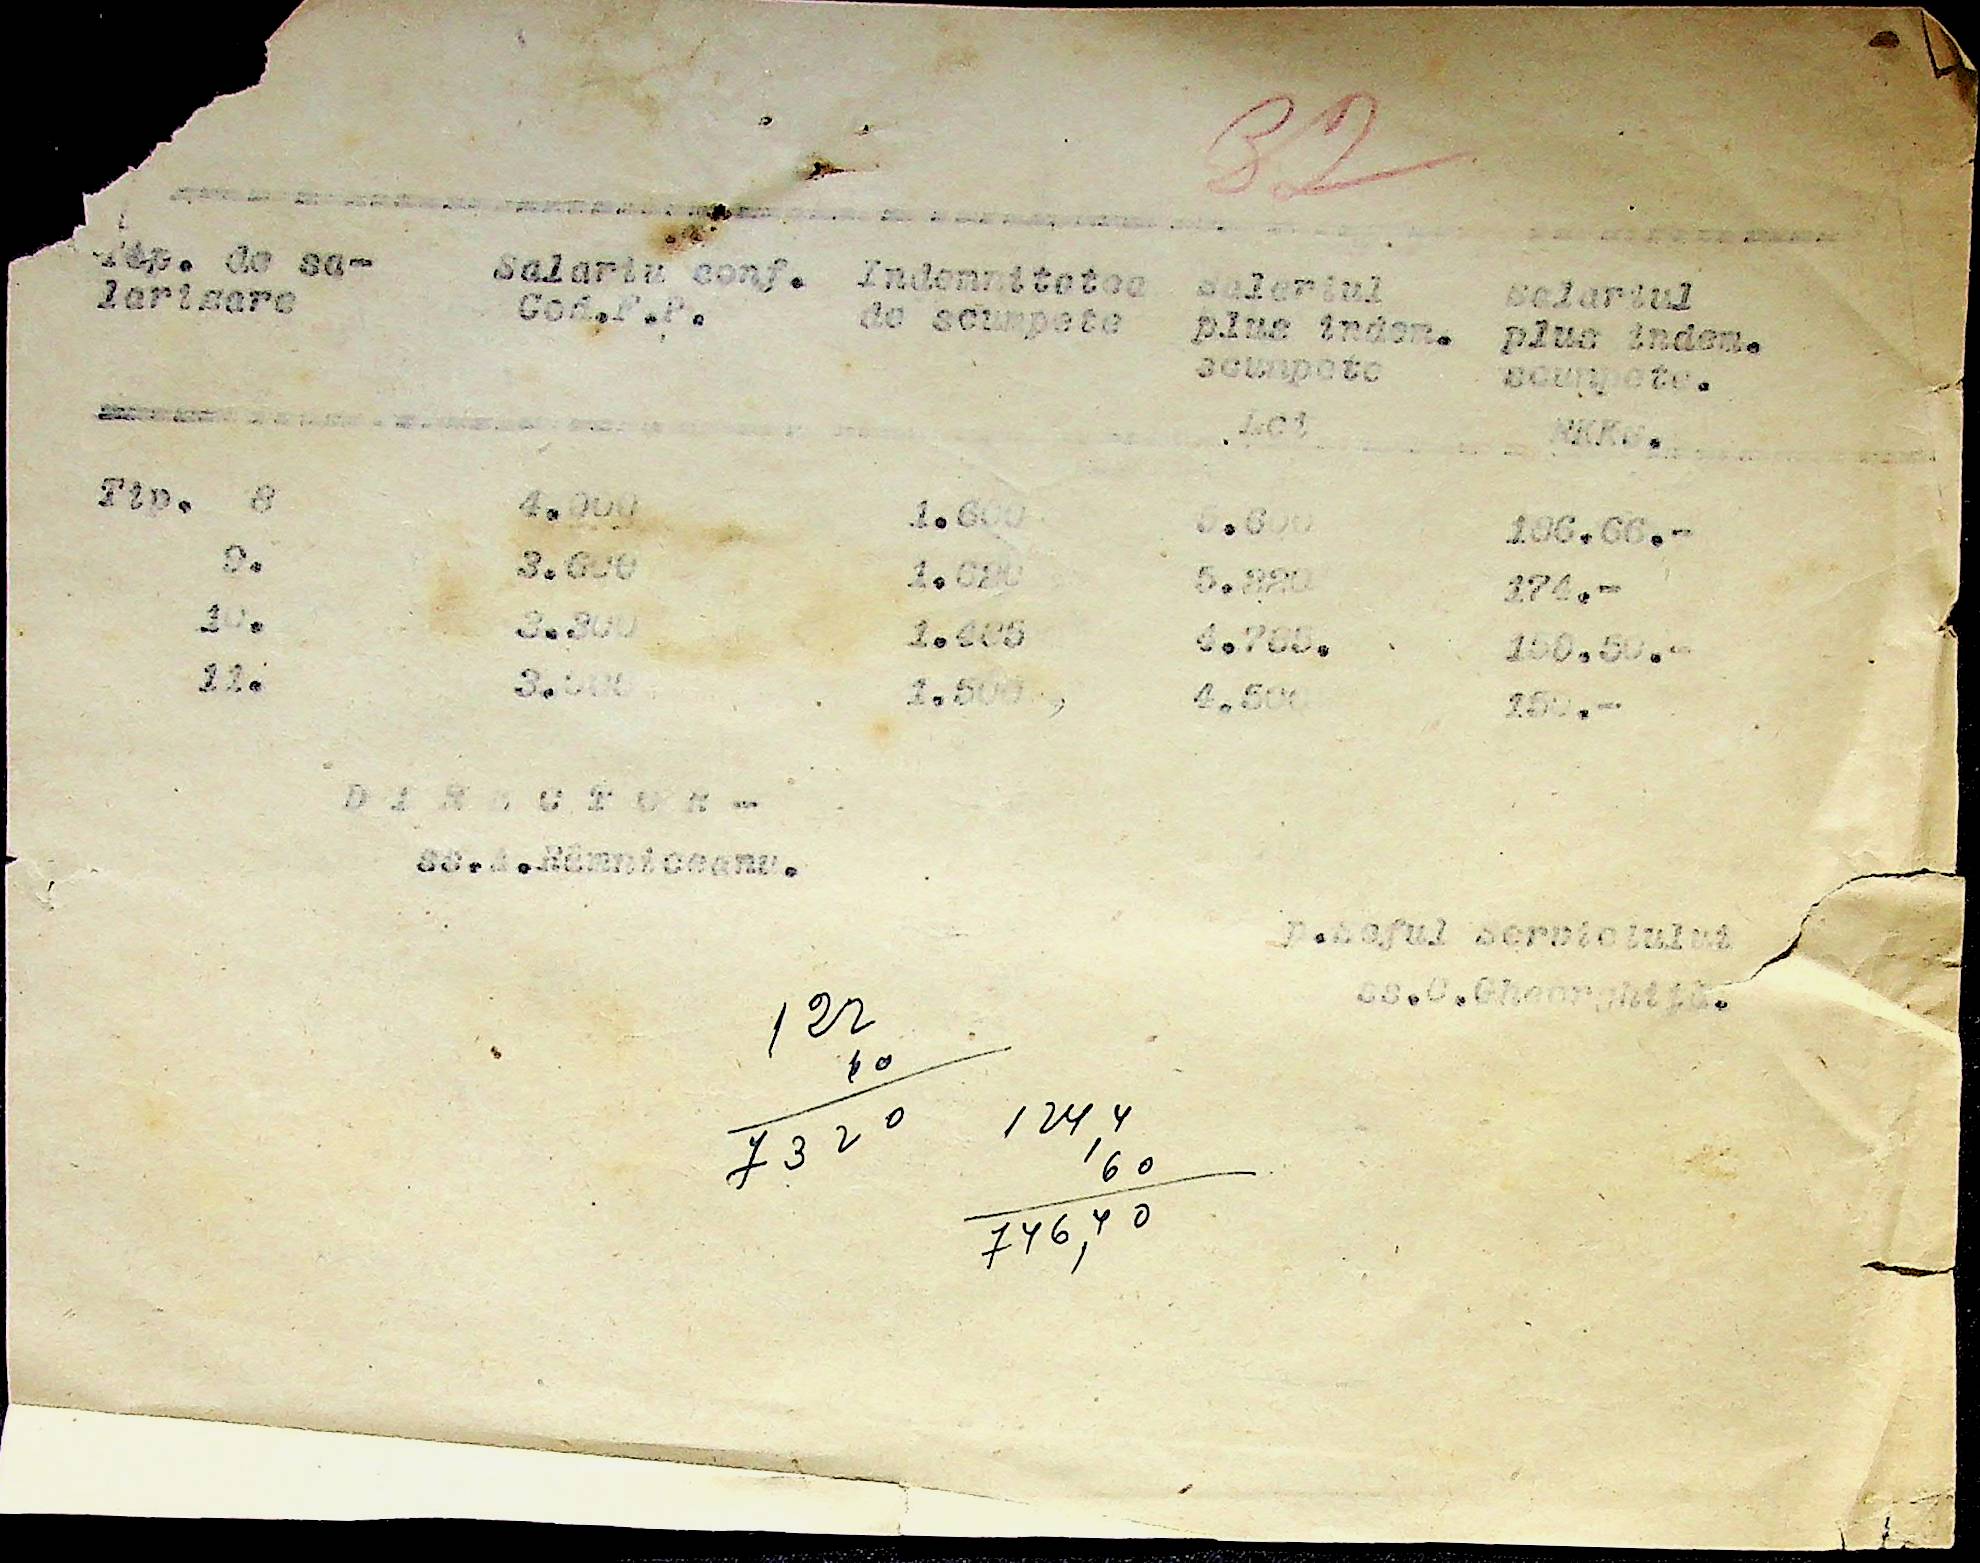 32
Tip. de sa- Salariu conf. Indemnitatea Salariul Salariul
larizare Cod.F.P. de scumpete plus indem. plus indem.
scumpete scumpete.
Lei RKKS.
Tip. 8 4.000 1.600 5.600 186.66.-
9. 3.600 1.620 5.220 174.-
10. 3.300 1.485 4.785. 159.50.-
11. 3.000 1.500 4.500 150.-
D I R E C T O R -
ss. Râmniceanu.
p.seful serviciului
ss.C.Gheorghiță.
122
60
7320
124,4
60
746,40